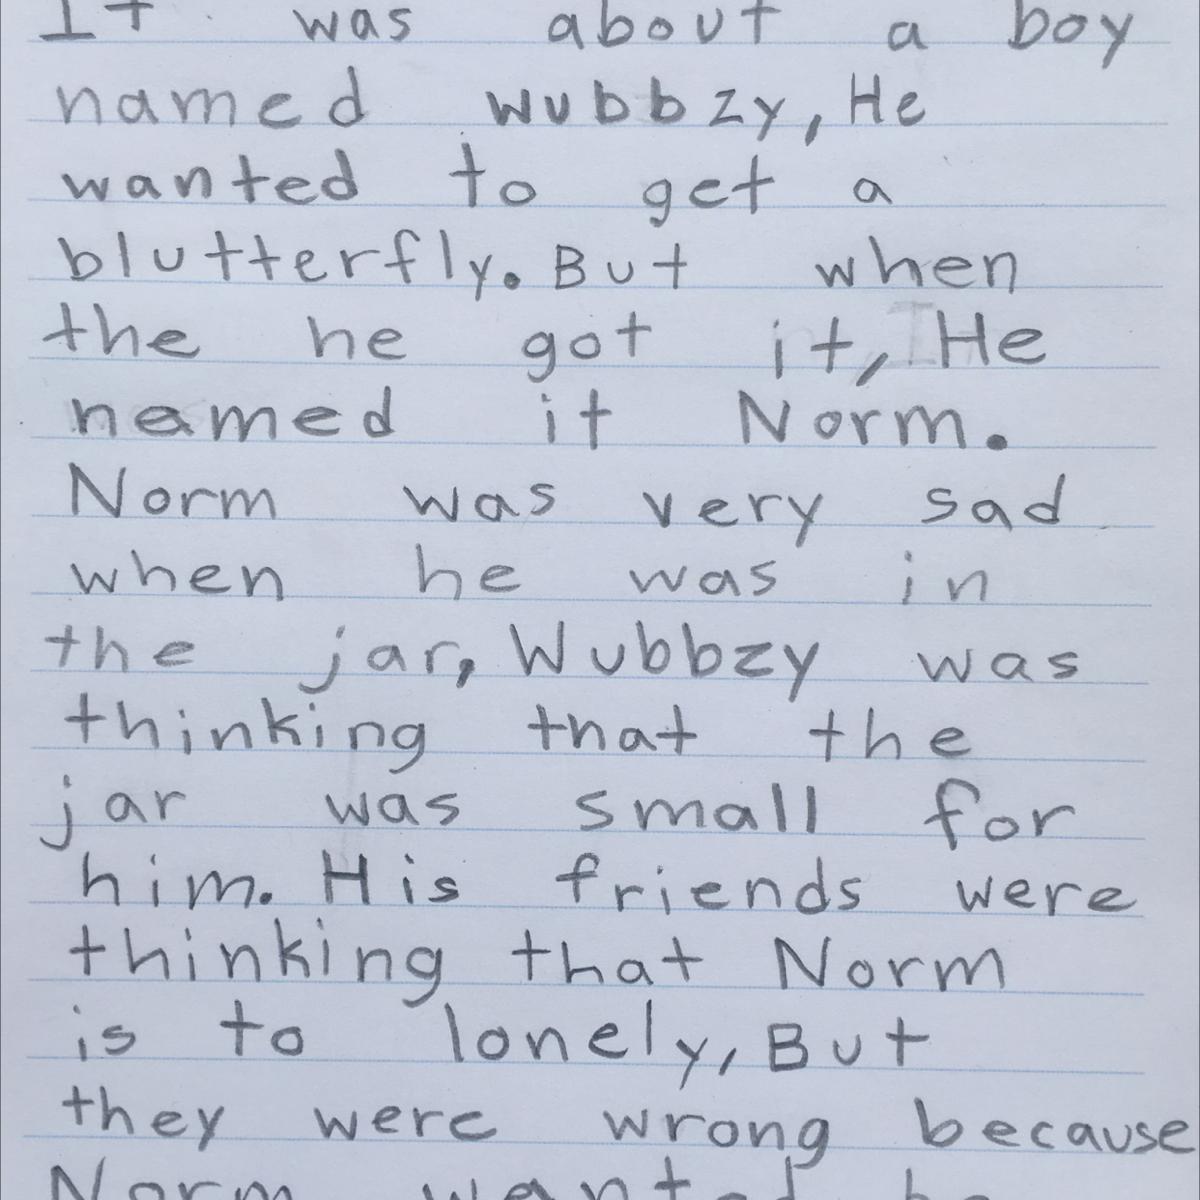 It was about a boy
named wubbzy, He
wanted to get a
blutterfly. But when
the he got it, He
named it Norm.
Norm was very sad
when he was in
the jar, Wubbzy was
thinking that the
jar was small for
him. His friends were
thinking that Norm
is to lonely, But
they were wrong because
Norm wanted